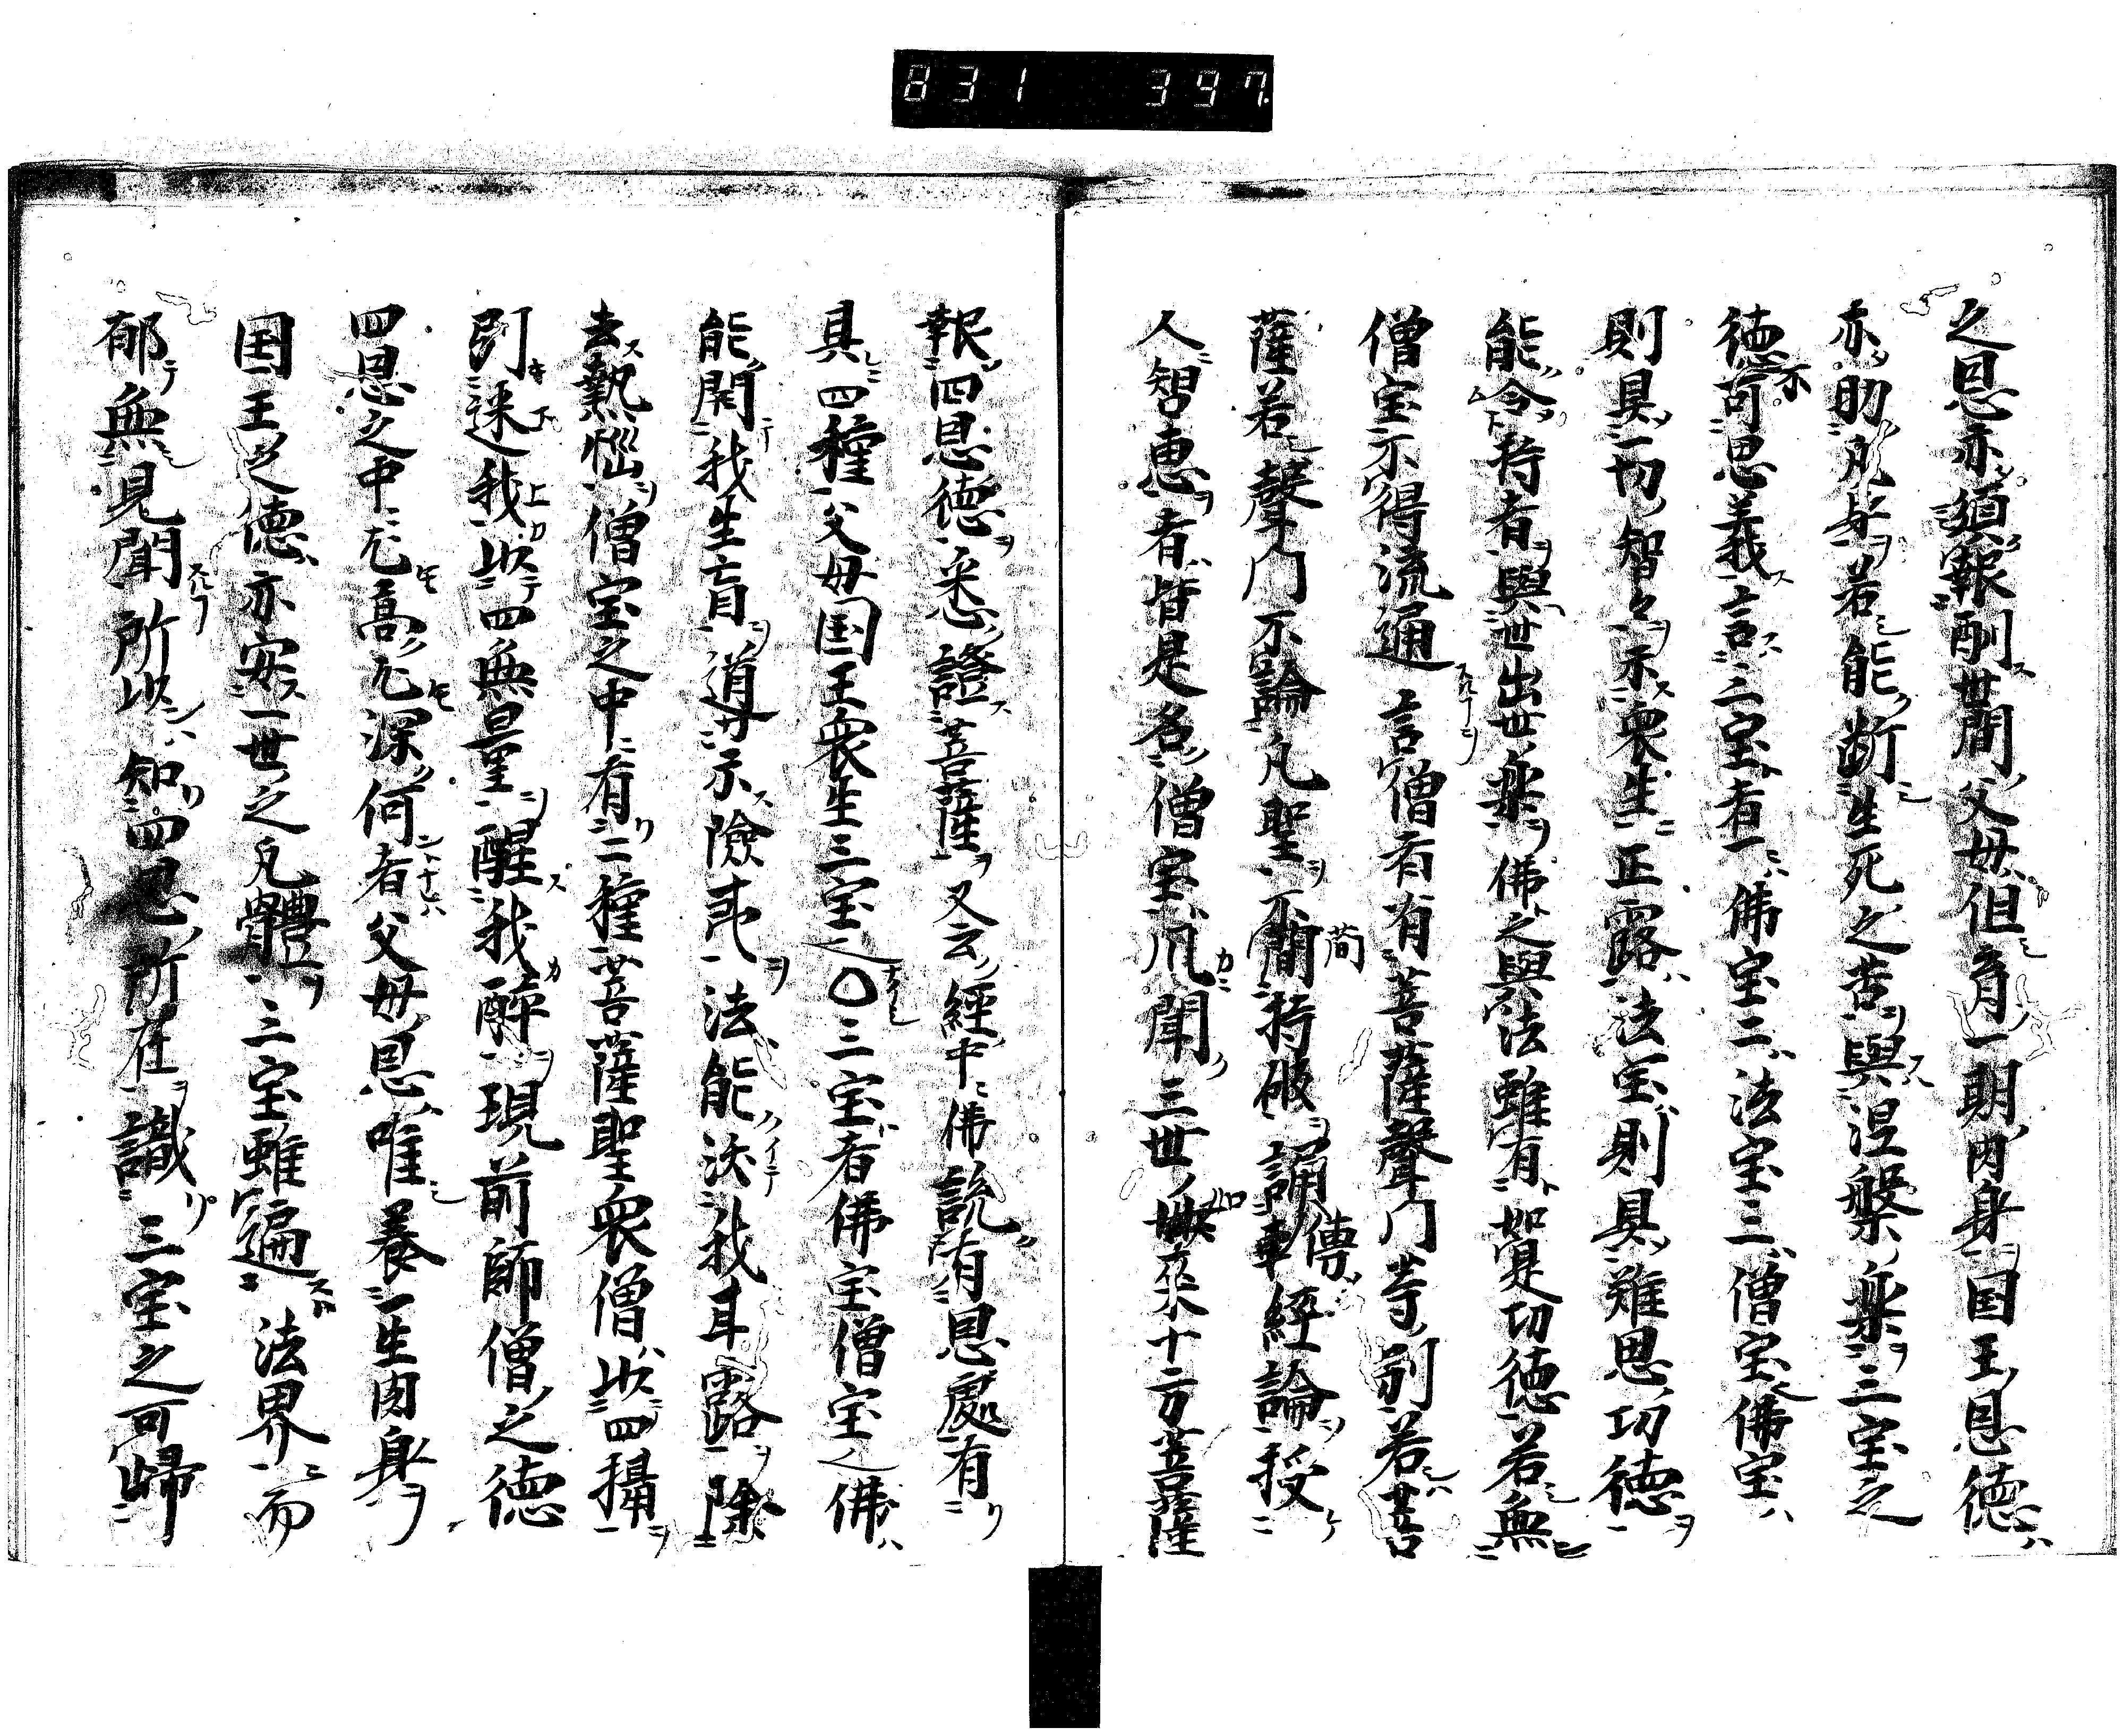 831 397
之恩亦須報酬世間父母但育一期肉身国王恩徳
亦助凡身若能断生死之苦與涅槃楽三宝之
徳不可思議言三宝者一佛宝二法宝三僧宝佛宝
則具一切智々示衆生正路法宝則具難思功徳
能令持者與世出世楽佛之與法雖有如是功徳若無
僧宝不得流通言僧者有菩薩聲門等別若菩
薩若聲門不論凡聖不簡持破誦傳經論授
人智恵者皆是名僧宝凡聞三世如来十方菩薩
報四恩徳悉證菩薩又云經中佛説有恩處有
具四種父母国王衆生三宝之〇三宝者佛宝僧宝之佛
能開我生盲導示險夷法能決我耳露除
去熱惱僧宝之中有二種菩薩聖衆僧以四攝
引迷我以四無量醒我酔現前師僧之徳
四恩之中尤高尤深何者父母恩唯養一生肉身
国王之徳亦安一世之凡體三宝雖遍法界而
郁無見聞所以知四恩所在識三宝之可歸